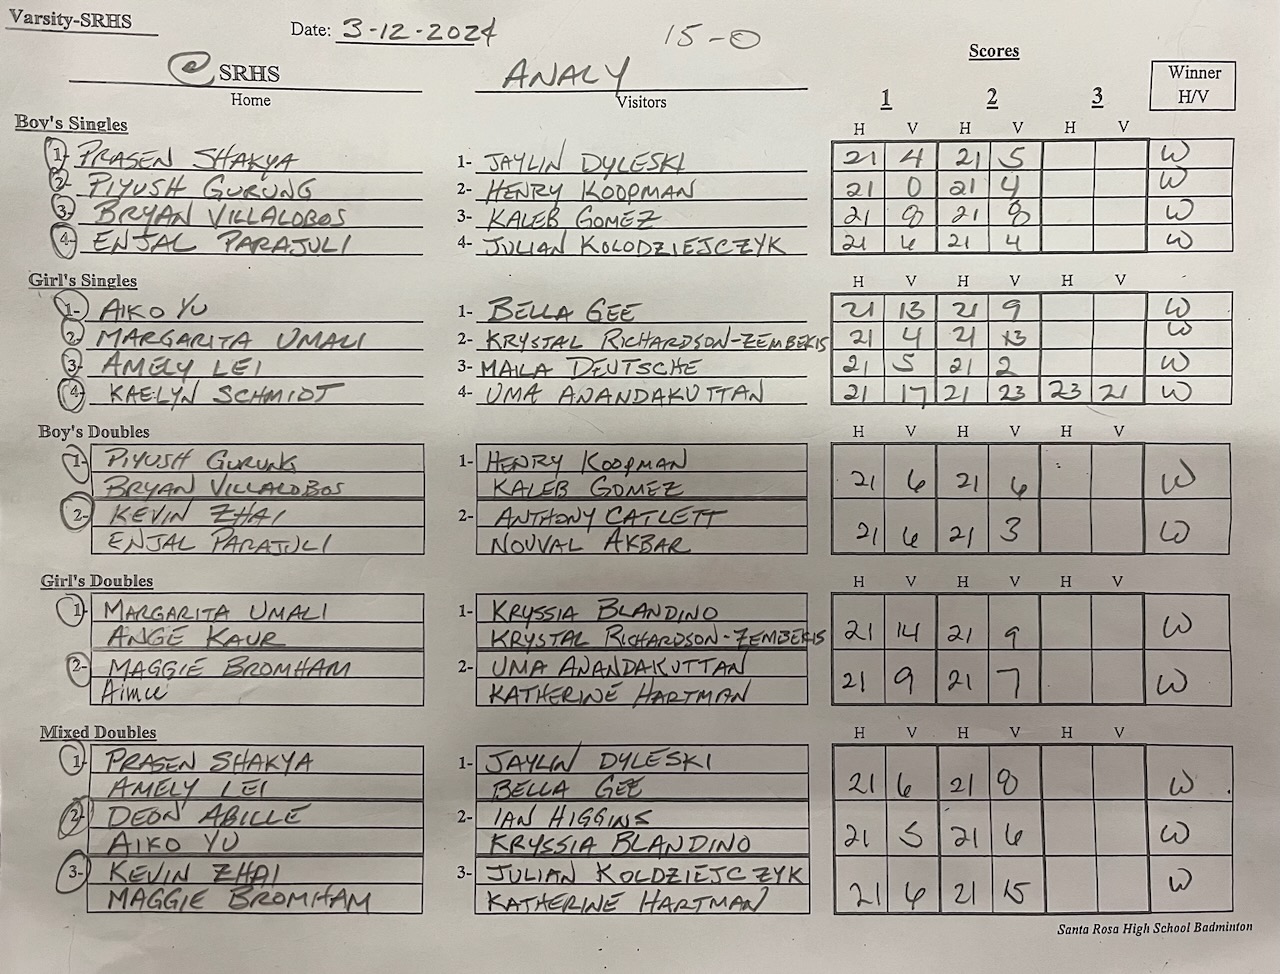 Varsity-SRHS
Date: 3-12-2024 15-0
@ SRHS ANALY Scores
Home Visitors 1 2 3 Winner H/V
Boy's Singles H V H V H V
1- PRASEN SHAKYA 1- JAYLIN DYLESKI 21 4 21 5 W
2- PIYUSH GURUNG 2- HENRY KOOPMAN 21 0 21 4 W
3- BRYAN VILLALOBOS 3- KALEB GOMEZ 21 8 21 8 W
4- ENJAL PARAJULI 4- JULIAN KOLODZIEJCZYK 21 6 21 4 W
Girl's Singles H V H V H V
1- AIKO YU 1- BELLA GEE 21 13 21 9 W
2- MARGARITA UMALI 2- KRYSTAL RICHARDSON-ZEMBEKIS 21 4 21 13 W
3- AMELY LEI 3- MAILA DEUTSCHE 21 5 21 2 W
4- KAELYN SCHMIDT 4- UMA ANANDAKUTTAN 21 17 21 23 23 21 W
Boy's Doubles H V H V H V
1- PIYUSH GURUNG 1- HENRY KOOPMAN
BRYAN VILLALOBOS KALEB GOMEZ 21 6 21 6 W
2- KEVIN ZHAI 2- ANTHONY CATLETT
ENJAL PARAJULI NOUVAL AKBAR 21 6 21 3 W
Girl's Doubles H V H V H V
1- MARGARITA UMALI 1- KRYSSIA BLANDINO
ANGE KAUR KRYSTAL RICHARDSON-ZEMBEKIS 21 14 21 9 W
2- MAGGIE BROMHAM 2- UMA ANANDAKUTTAN
Aimee KATHERINE HARTMAN 21 9 21 7 W
Mixed Doubles H V H V H V
1- PRASEN SHAKYA 1- JAYLIN DYLESKI
AMELY LEI BELLA GEE 21 6 21 8 W
2- DEON ABILLE 2- IAN HIGGINS
AIKO YU KRYSSIA BLANDINO 21 5 21 6 W
3- KEVIN ZHAI 3- JULIAN KOLDZIEJCZYK
MAGGIE BROMHAM KATHERINE HARTMAN 21 6 21 15 W
Santa Rosa High School Badminton